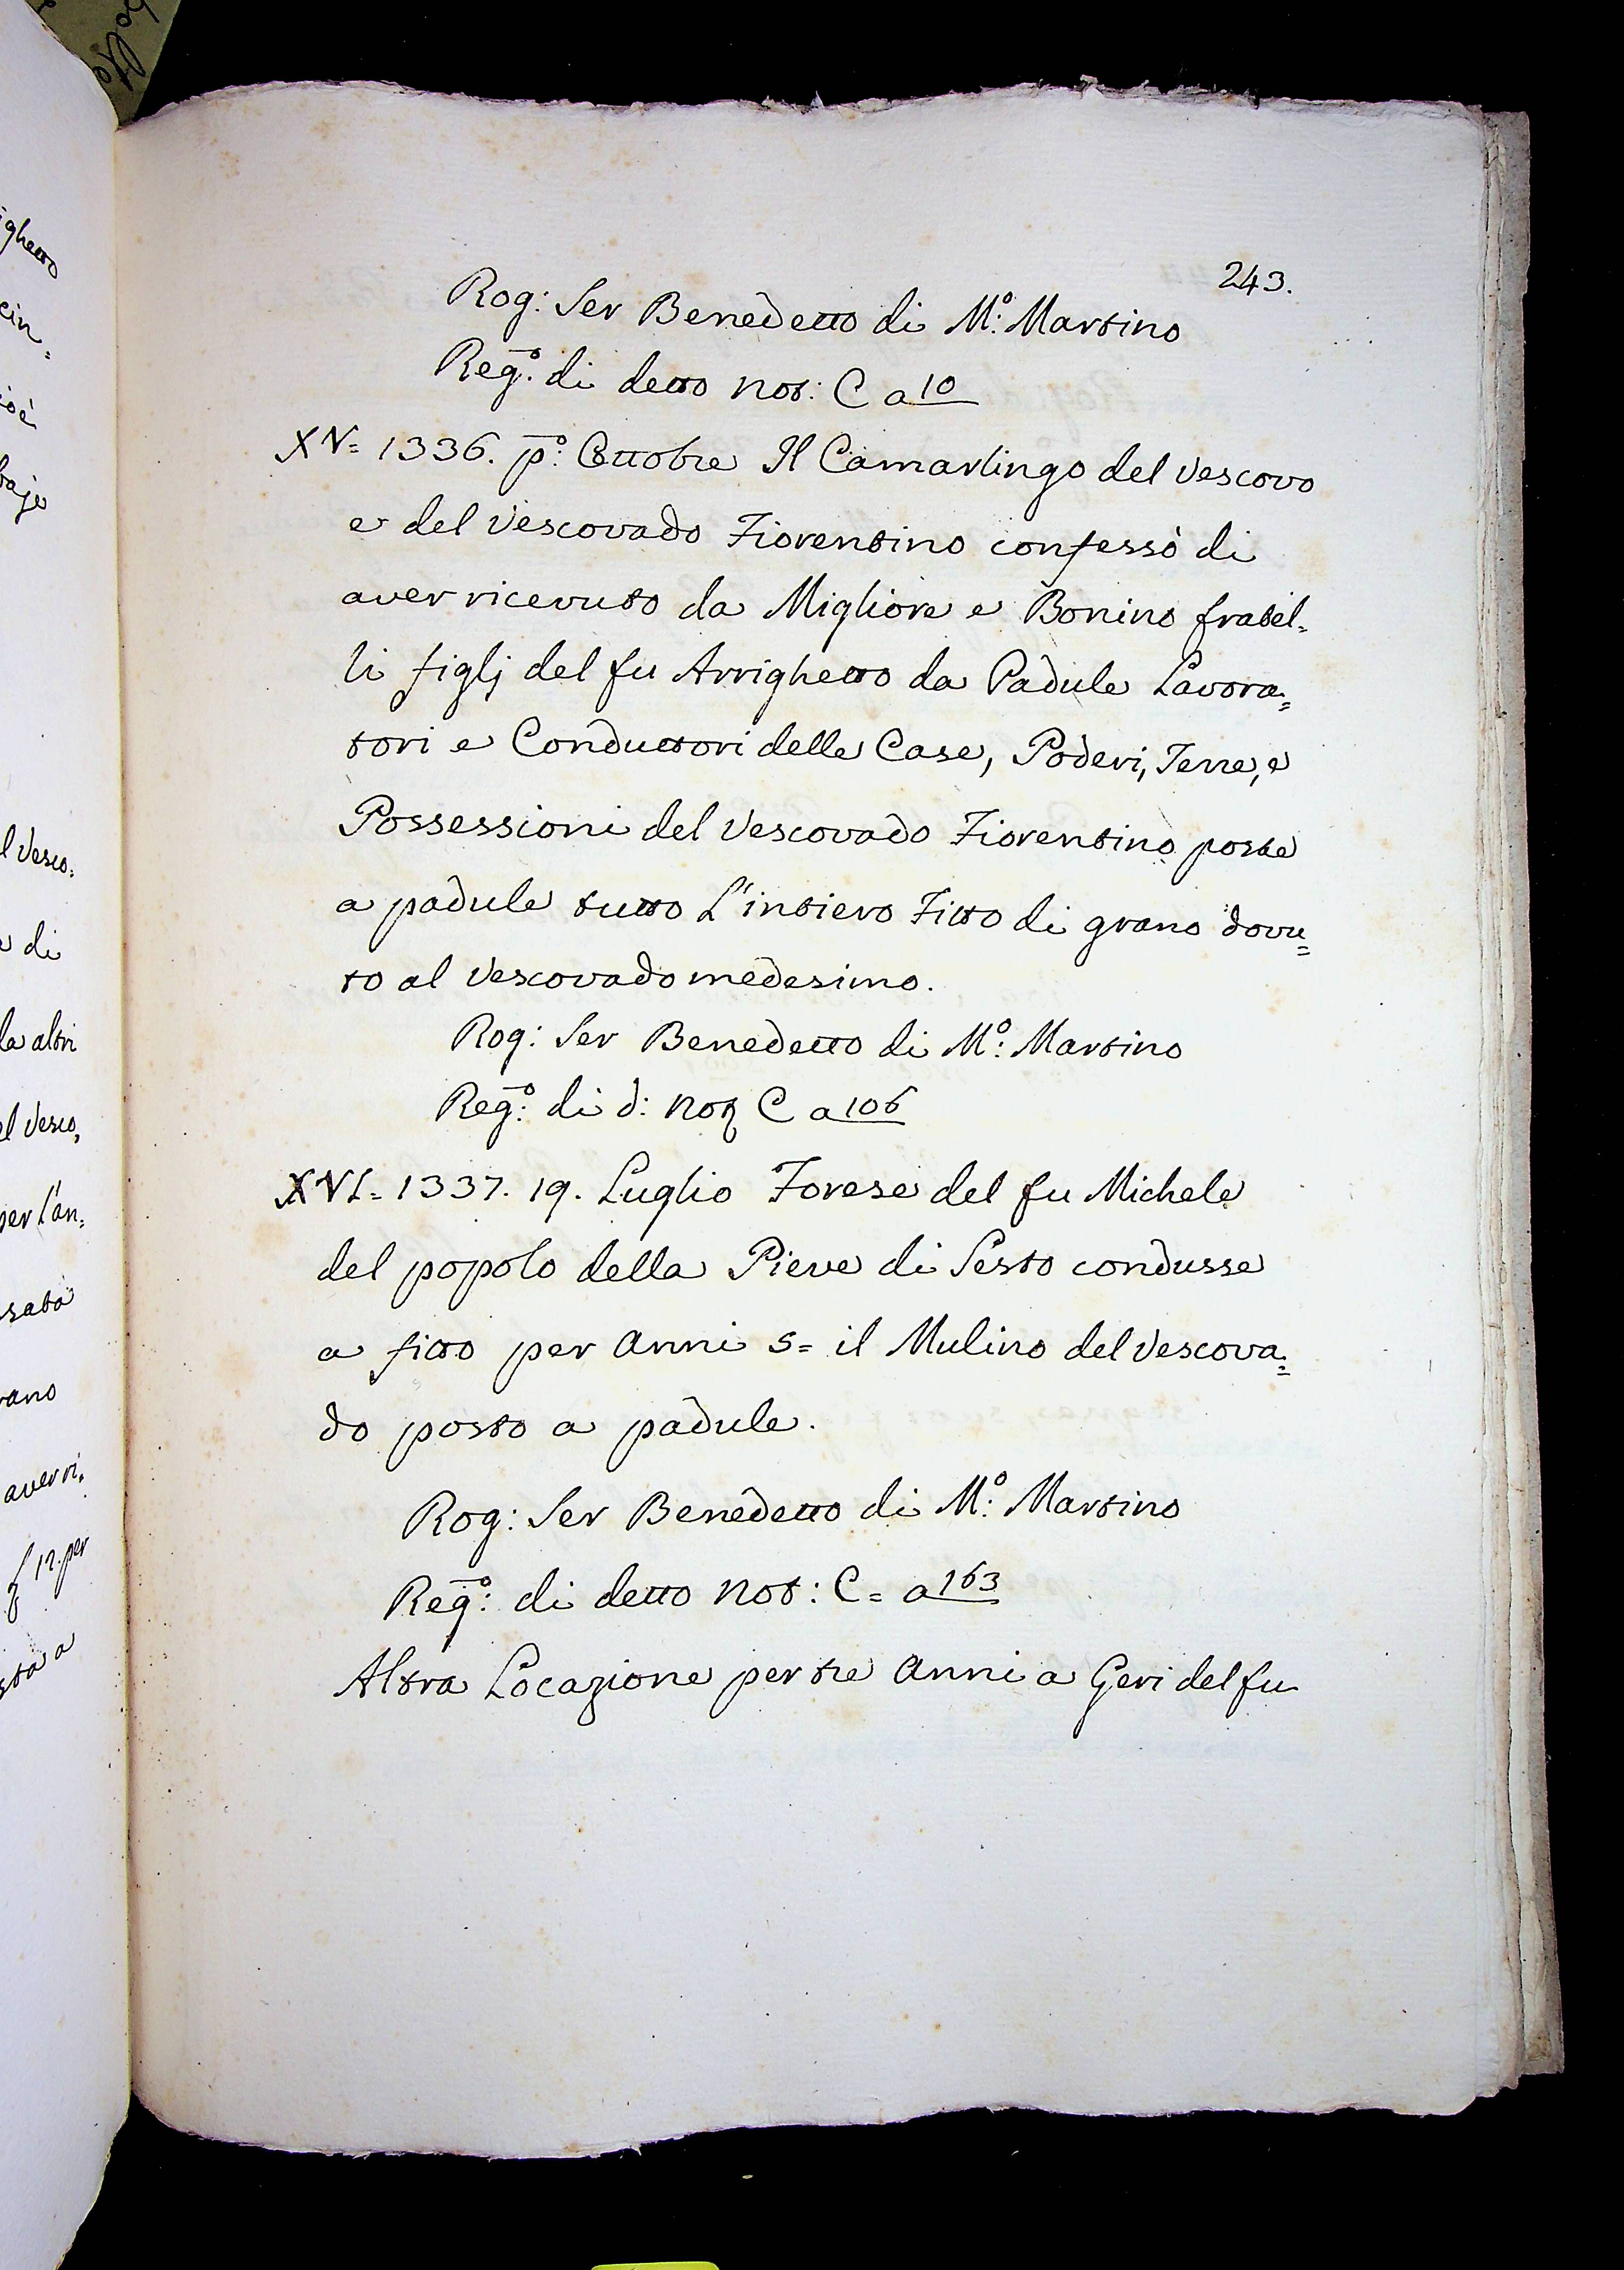 243.
Rog: Ser Benedetto di M.º Martino
Reg.º di detto Not: C a 10
XV= 1336. p.º Ottobre Il Camarlingo del Vescovo
e del Vescovado Fiorentino confessò di
aver ricevuto da Migliore e Bonino fratel=
li figlj del fu Arrighetto da Padule Lavora=
tori e Conduttori delle Case, Poderi, Terre, e
Possessioni del Vescovado Fiorentino poste
a padule tutto L'intiero Fitto di grano dovu=
to al Vescovado medesimo.
Rog: Ser Benedetto di M.º Martino
Reg.º di d: Not C a 106
XVI= 1337. 19. Luglio Forese del fu Michele
del popolo della Pieve di Sesto condusse
a fitto per Anni 5= il Mulino del Vescova=
do posto a padule.
Rog: Ser Benedetto di M.º Martino
Reg.º di detto Not: C= a 163
Altra Locazione per tre Anni a Geri del fu